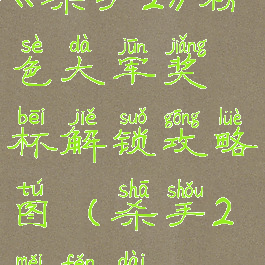 sè dà jūn jiǎng
色大军奖
bēi jiě suǒ gōng lüè
杯解锁攻略
tú shā shǒu
图（杀手2